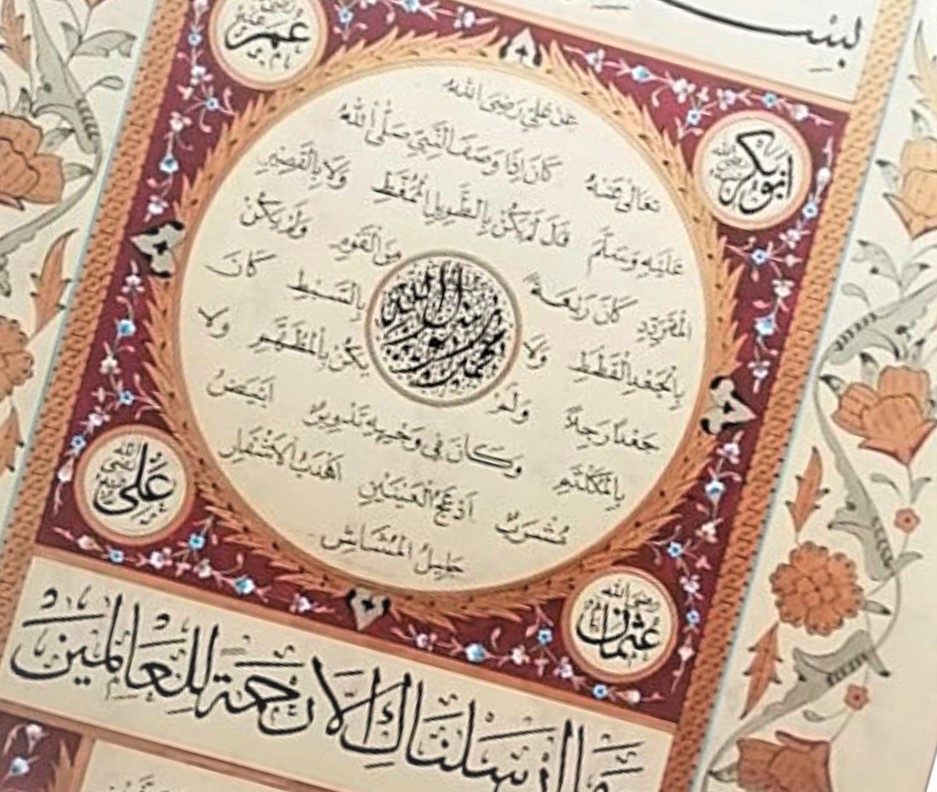 بسم
عمر رضي الله عنه
ابو بكر رضي الله عنه
عَنْ عَلِيٍّ رَضِيَ اللهُ
تَعَالَى عَنْهُ كَانَ اِذَا وَصَفَ النَّبِيَّ صَلَّى اللهُ
عَلَيْهِ وَسَلَّمَ قَالَ لَمْ يَكُنْ بِالطَّوِيلِ الْمُمَّغَطِ وَلَا بِالْقَصِيرِ
الْمُتَرَدِّدِ كَانَ رَبْعَةً مِنَ الْقَوْمِ وَلَمْ يَكُنْ
بِالْجَعْدِ الْقَطَطِ وَلَا بِالسَّبِطِ كَانَ
جَعْدًا رَجِلًا وَلَمْ يَكُنْ بِالْمُطَهَّمِ وَلَا
بِالْمُكَلْثَمِ وَكَانَ فِي وَجْهِهِ تَدْوِيرٌ اَبْيَضُ
مُشْرَبٌ اَدْعَجُ الْعَيْنَيْنِ اَهْدَبُ الْاَشْفَارِ
جَلِيلُ الْمُشَاشِ
محمد رسول الله
علي رضي الله عنه
عثمان رضي الله عنه
وَمَا اَرْسَلْنَاكَ اِلَّا رَحْمَةً لِلْعَالَمِينَ